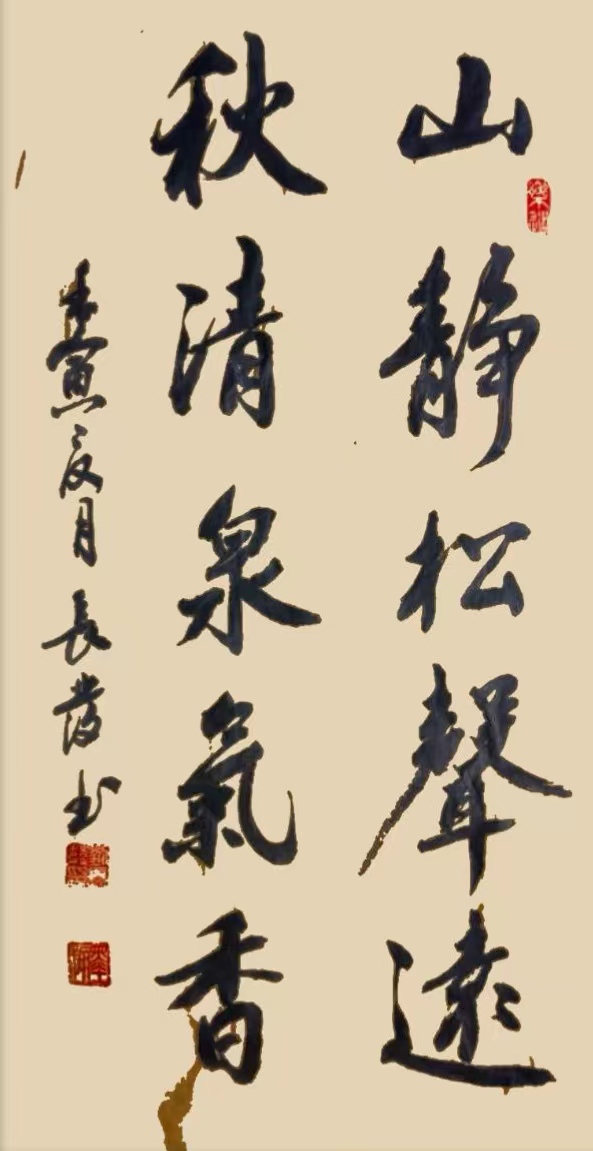 山靜松聲遠
秋清泉氣香
壬寅夏月長發书